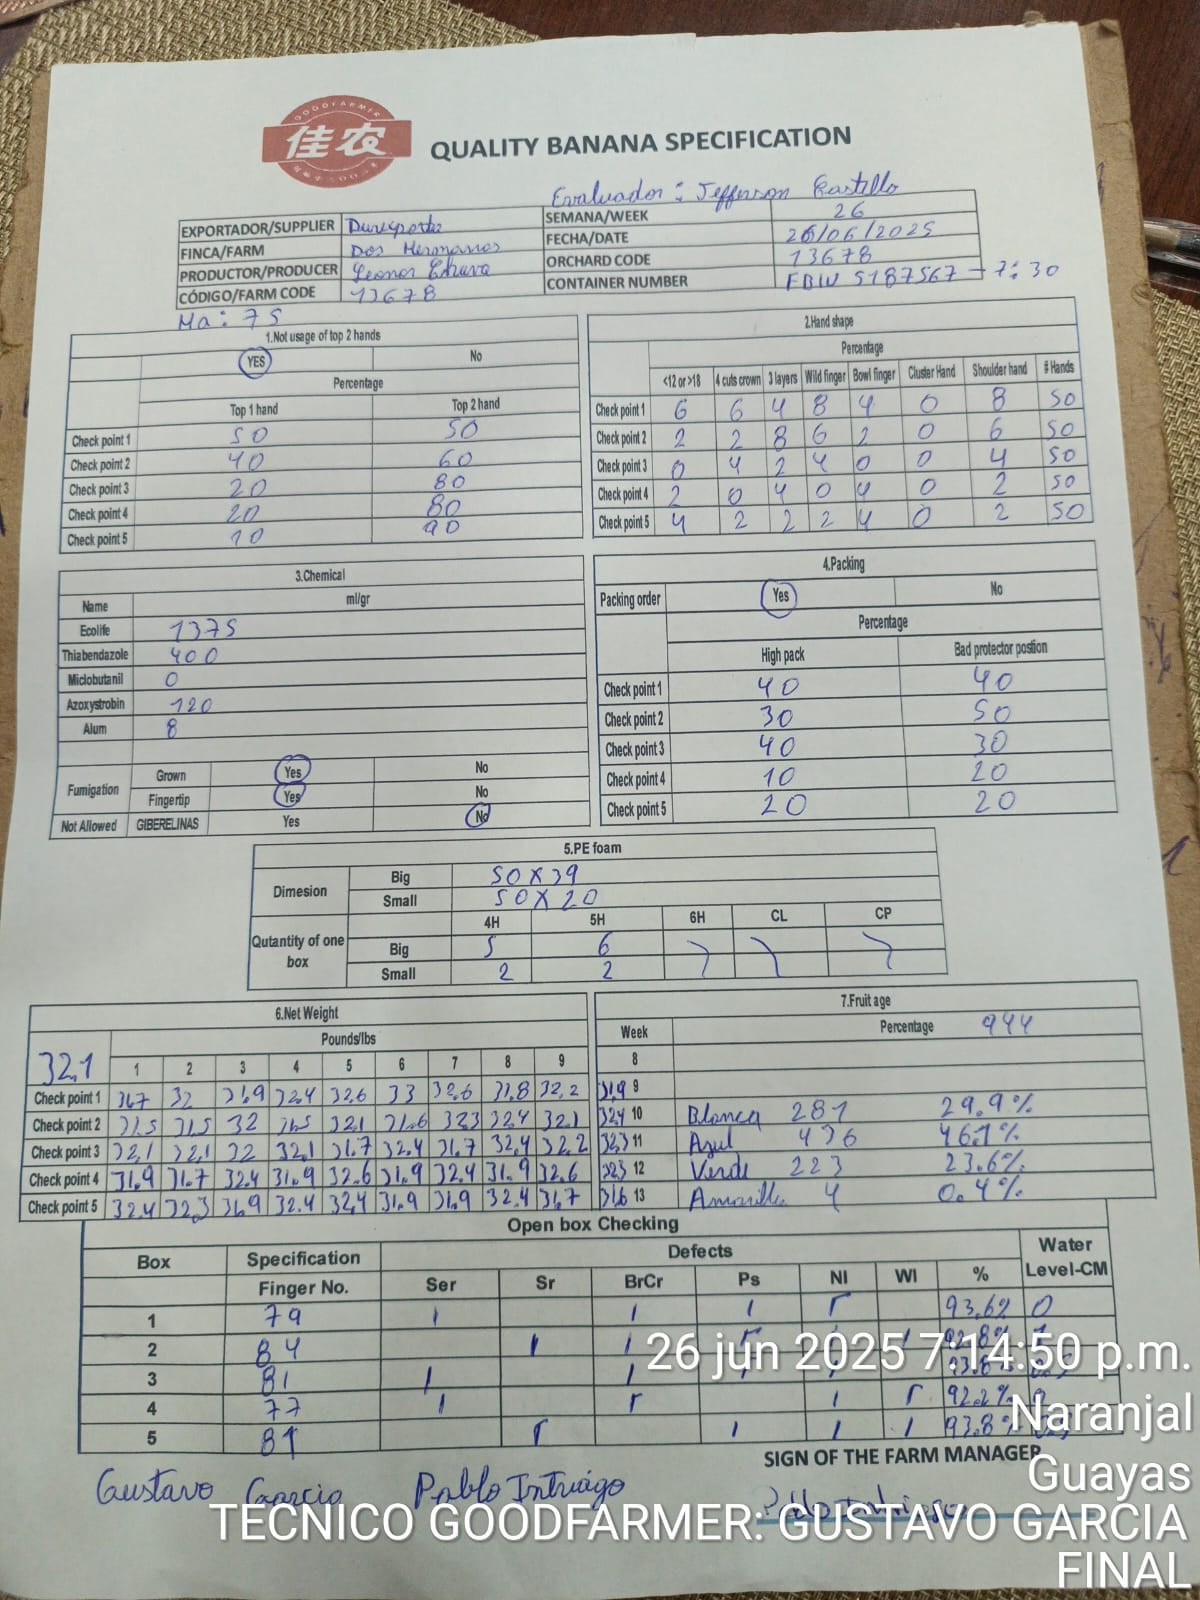 GOODFARMER
佳农
QUALITY BANANA SPECIFICATION
Evaluador: Jefferson Castillo
EXPORTADOR/SUPPLIER Durexporta SEMANA/WEEK 26
FINCA/FARM Dos Hermanos FECHA/DATE 26/06/2025
PRODUCTOR/PRODUCER Leonor ORCHARD CODE 13678
CÓDIGO/FARM CODE 13678 CONTAINER NUMBER FBIU 5187567 - 7:30
Ha: 75
1.Not usage of top 2 hands
YES No
Percentage
Top 1 hand Top 2 hand
Check point 1 50 50
Check point 2 40 60
Check point 3 20 80
Check point 4 20 80
Check point 5 10 90
2.Hand shape
Percentage
<12 or >18 4 cuts crown 3 layers Wild finger Bowl finger Cluster Hand Shoulder hand # Hands
Check point 1 6 6 4 8 4 0 8 50
Check point 2 2 2 8 6 2 0 6 50
Check point 3 0 4 2 4 0 0 4 50
Check point 4 2 0 4 0 4 0 2 50
Check point 5 4 2 2 2 4 0 2 50
3.Chemical
Name ml/gr
Ecolife 1375
Thiabendazole 400
Miclobutanil 0
Azoxystrobin 120
Alum 8
Fumigation Grown Yes No
Fingertip Yes No
Not Allowed GIBERELINAS Yes No
4.Packing
Packing order Yes No
Percentage
High pack Bad protector postion
Check point 1 40 40
Check point 2 30 50
Check point 3 40 30
Check point 4 10 20
Check point 5 20 20
5.PE foam
Dimesion Big 50 X 39
Small 50 X 20
4H 5H 6H CL CP
Qutantity of one box Big 5 6
Small 2 2
6.Net Weight
Pounds/lbs
32,1 1 2 3 4 5 6 7 8 9
Check point 1 31,7 32 31,9 32,4 32,6 33 32,6 31,8 32,2 31,9
Check point 2 31,5 31,5 32 32,1 31,6 32,3 32,4 32,1 32,4
Check point 3 32,1 32,1 32 32,1 31,7 32,4 31,7 32,4 32,2 32,3
Check point 4 31,9 31,7 32,4 31,9 32,6 31,9 32,4 31,9 32,6 32,3
Check point 5 32,4 32,3 31,9 32,4 32,4 31,9 31,9 32,4 31,7 31,6
7.Fruit age
Week Percentage 944
8
9
10 Blanca 281 29.9%
11 Azul 436 46.1%
12 Verde 223 23.6%
13 Amarilla 4 0.4%
Open box Checking
Box Specification Defects Water
Finger No. Ser Sr BrCr Ps NI WI % Level-CM
1 79 1 1 1 93,6% 0
2 84 1 1 1 92.8%
3 81 1 1 93.8%
4 77 1 1 92.2%
5 81 1 1 1 93.8%
SIGN OF THE FARM MANAGER
Gustavo Garcia Pablo Intriago
26 jun 2025 7:14:50 p.m.
Naranjal
Guayas
TECNICO GOODFARMER: GUSTAVO GARCIA
FINAL